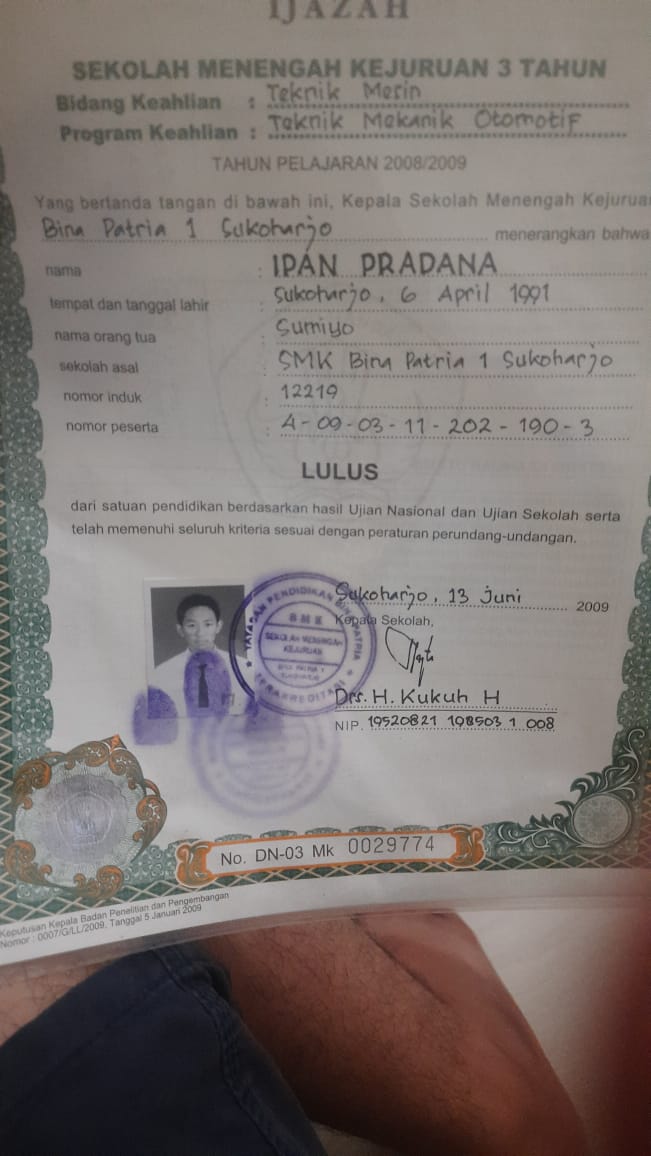 IJAZAH
SEKOLAH MENENGAH KEJURUAN 3 TAHUN
Bidang Keahlian : Teknik Mesin
Program Keahlian : Teknik Mekanik Otomotif
TAHUN PELAJARAN 2008/2009
Yang bertanda tangan di bawah ini, Kepala Sekolah Menengah Kejurua
Bina Patria 1 Sukoharjo menerangkan bahwa
nama : IPAN PRADANA
tempat dan tanggal lahir : Sukoharjo, 6 April 1991
nama orang tua : Sumiyo
sekolah asal : SMK Bina Patria 1 Sukoharjo
nomor induk : 12219
nomor peserta : 4-09-03-11-202-190-3
LULUS
dari satuan pendidikan berdasarkan hasil Ujian Nasional dan Ujian Sekolah serta
telah memenuhi seluruh kriteria sesuai dengan peraturan perundang-undangan.
Sukoharjo, 13 Juni 2009
Kepala Sekolah,
YAYASAN PENDIDIKAN BINA PATRIA
SMK
SEKOLAH MENENGAH
KEJURUAN
TERAKREDITASI
Drs. H. Kukuh H
NIP. 19520821 198503 1 008
No. DN-03 Mk 0029774
Keputusan Kepala Badan Penelitian dan Pengembangan
Nomor : 0007/G/LL/2009, Tanggal 5 Januari 2009